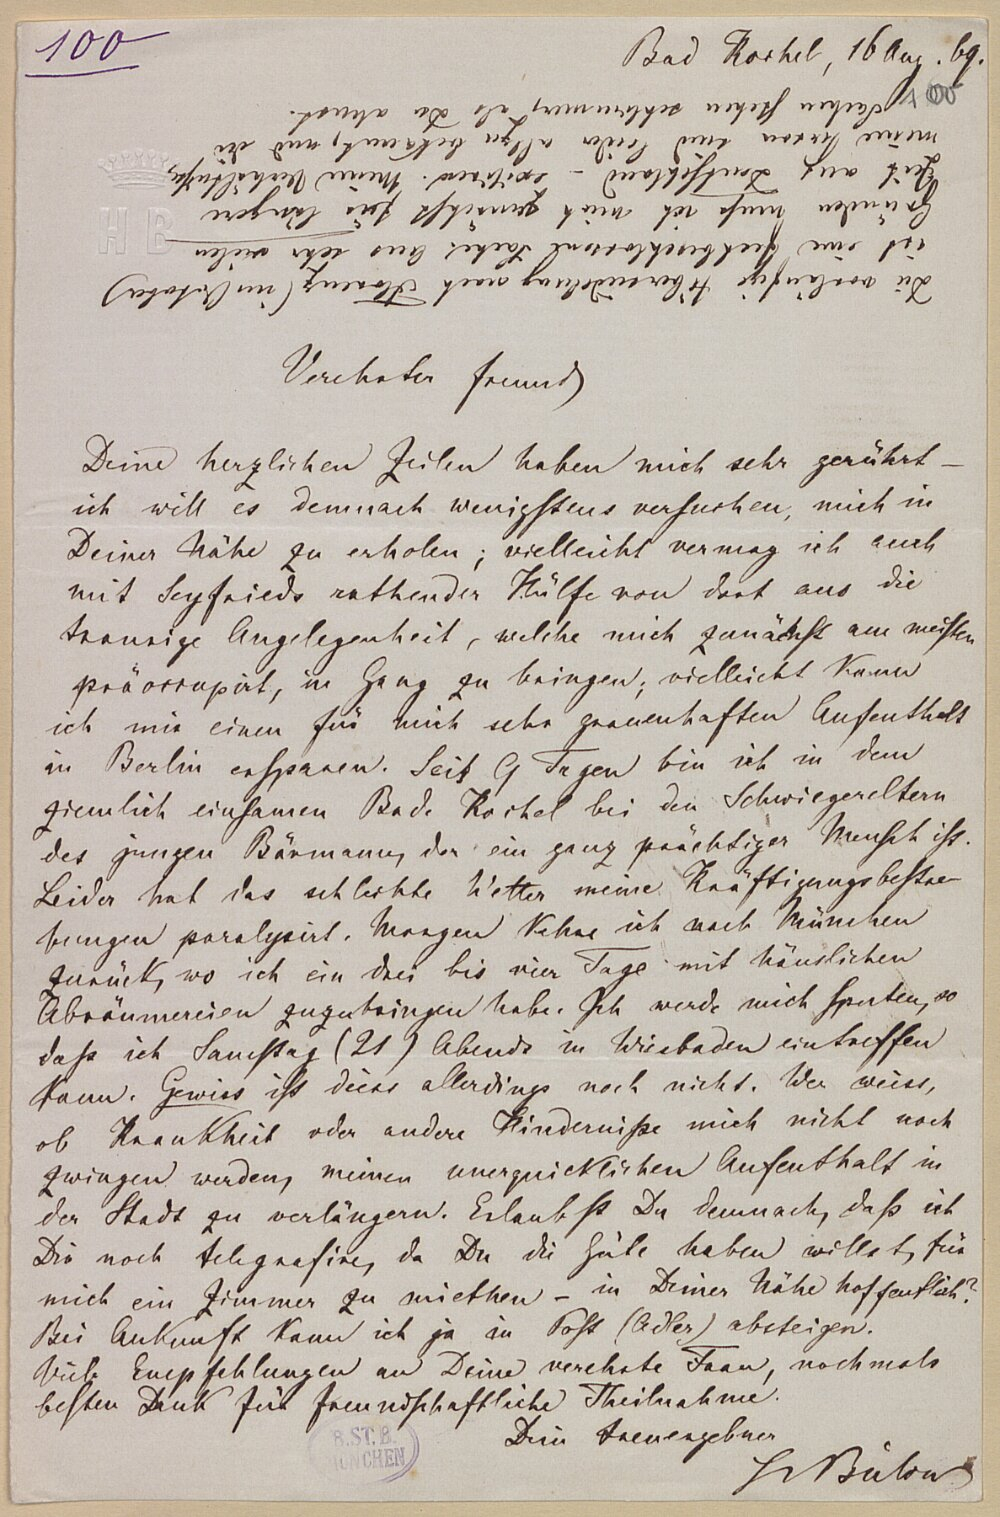 100
Bad Kochel, 16 Aug. 69.
100
Die vorläufige Übersiedelung nach Florenz (im Oktober)
ist eine fest beschlossene Sache. Aus sehr vielen
Gründen muss ich mich zunächst für längere
Zeit aus Deutschland – exiliren. Meine Verhältnisse,
meine Herren sind leider allzu bekannt, und die
Sachen stehen schlimmer, als Du ahnst.
H B
Verehrter Freund
Deine herzlichen Zeilen haben mich sehr gerührt –
ich will es demnach wenigstens versuchen, mich in
Deiner Nähe zu erholen; vielleicht vermag ich auch
mit Seyfrieds rathender Hülfe von dort aus die
traurige Angelegenheit, welche mich zunächst am meisten
präoccupirt, in Gang zu bringen; vielleicht kann
ich mir einen für mich sehr grauenhaften Aufenthalt
in Berlin ersparen. Seit 9 Tagen bin ich in dem
ziemlich einsamen Bade Kochel bei den Schwiegereltern
des jungen Bärmann, der ein ganz prächtiger Mensch ist.
Leider hat das schlechte Wetter meine Kräftigungsbestre-
bungen paralysirt. Morgen kehre ich nach München
zurück, wo ich ein drei bis vier Tage mit häuslichen
Abräumereien zuzubringen habe. Ich werde mich sputen, so
daß ich Samstag (21) Abends in Wiesbaden eintreffen
kann. Gewiss ist dies allerdings noch nicht. Wer weiss,
ob Krankheit oder andere Hinderniße mich nicht noch
zwingen werden, meinen unerquicklichen Aufenthalt in
der Stadt zu verlängern. Erlaubst Du demnach, daß ich
Dir noch telegrafire, da Du die Güte haben willst, für
mich ein Zimmer zu miethen – in Deiner Nähe hoffentlich?
Bei Ankunft kann ich ja in Post (Adler) absteigen.
Viele Empfehlungen an Deine verehrte Frau, nochmals
besten Dank für freundschaftliche Theilnahme.
Dein treuergebner
H v Bülow
B.ST.B.
MÜNCHEN